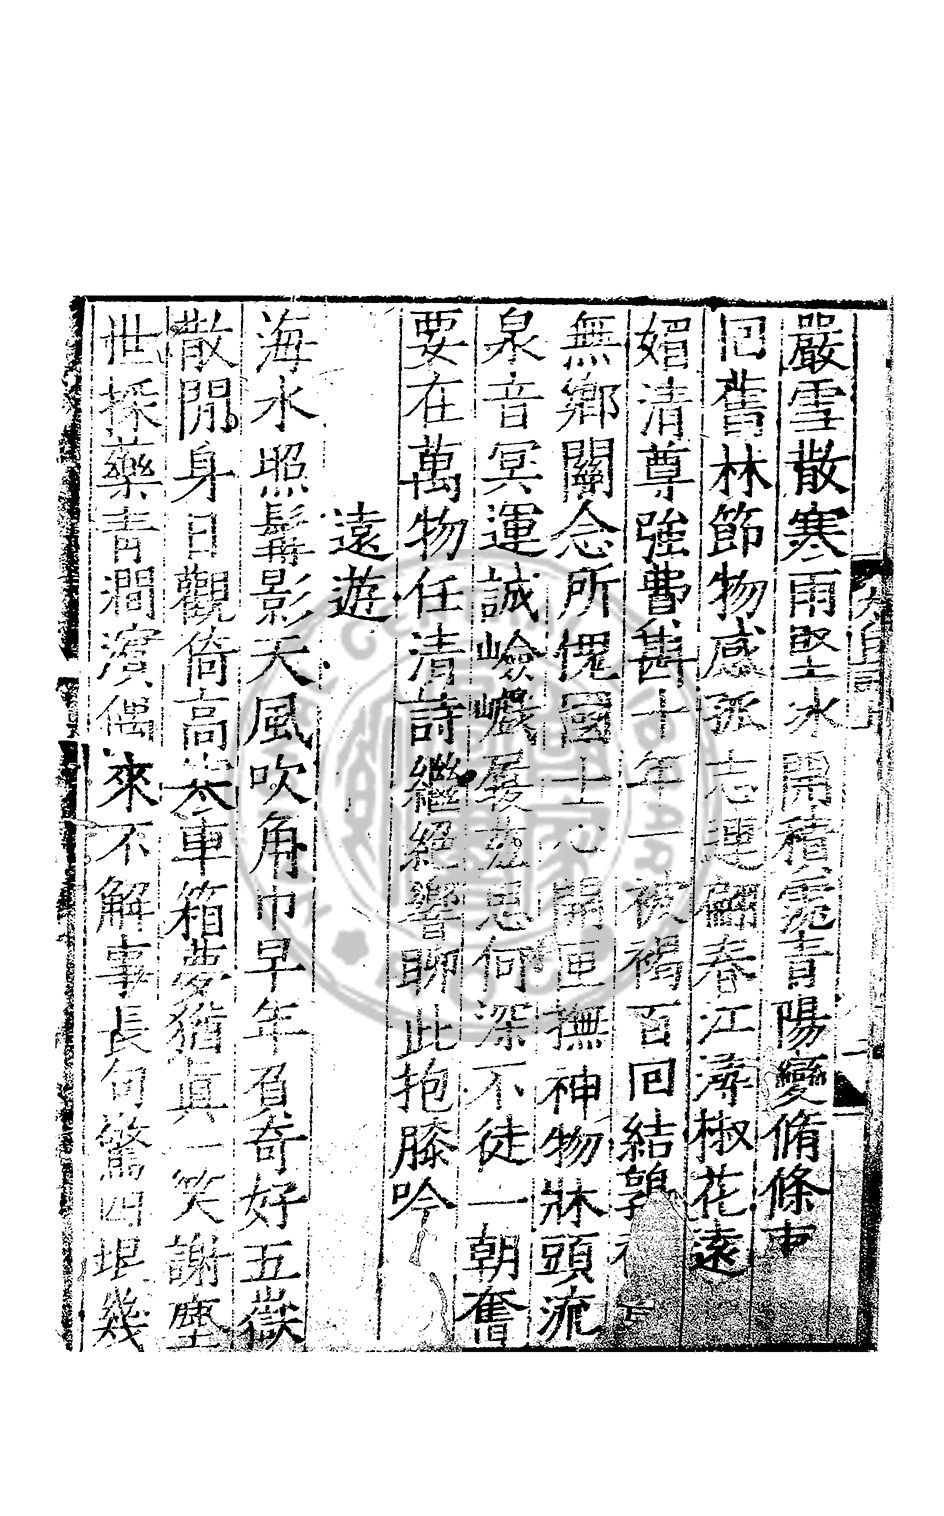 嚴雪散寒雨堅冰開積靄青陽變脩條
回舊林節物感孤志連翩春江潯椒花遠
媚清尊強費斟十年一被褐百回結
無鄉關念所愧國士心開匣撫神物牀頭流
泉音冥運誠嶮巇展玄思何深不徒一朝奮
要在萬物任清詩繼絕響聊此抱膝吟
遠遊
海水照鬅影天風吹角巾早年負奇好五嶽
散閒身日觀倚高岑車箱夢猶真一笑謝塵
世採藥青澗濱偶來不解事長句驚四垠幾